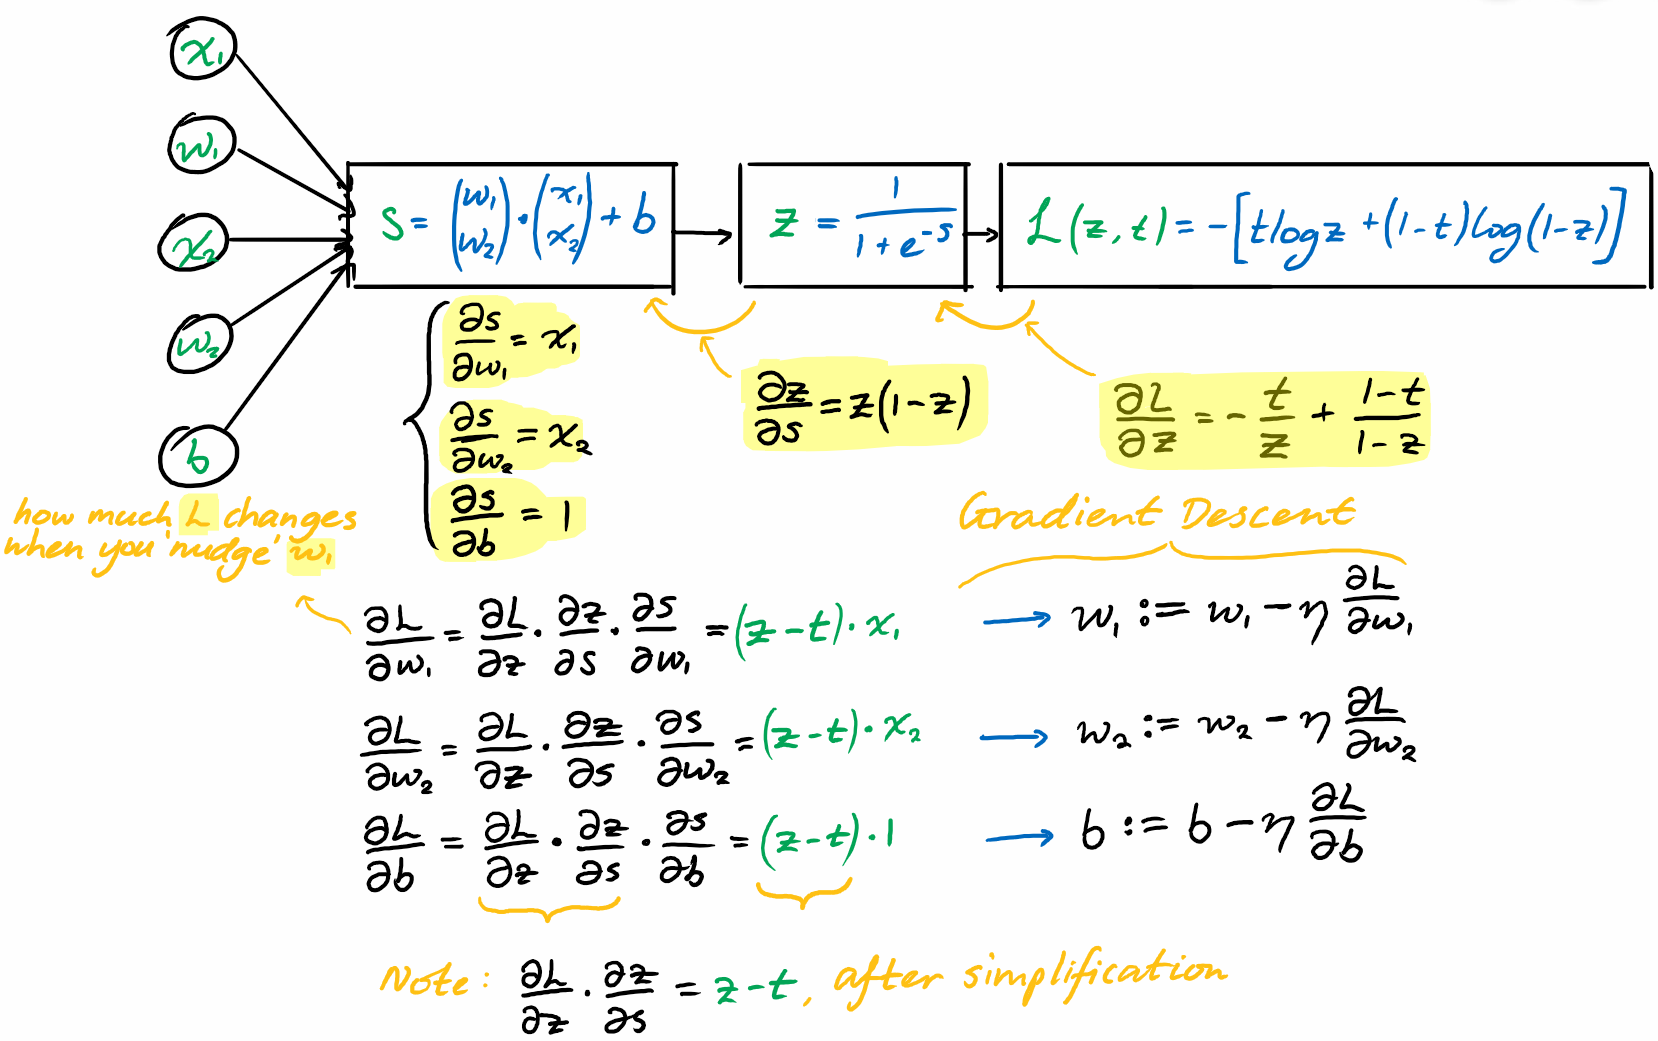 x₁
w₁
x₂
w₂
b
S = (w₁ w₂) · (x₁ x₂) + b
z = 1 / (1 + e^-s)
L(z, t) = -[t log z + (1-t) log(1-z)]
∂s/∂w₁ = x₁
∂s/∂w₂ = x₂
∂s/∂b = 1
∂z/∂s = z(1-z)
∂L/∂z = - t/z + (1-t)/(1-z)
how much L changes
when you 'nudge' w₁
Gradient Descent
∂L/∂w₁ = ∂L/∂z · ∂z/∂s · ∂s/∂w₁ = (z-t) · x₁ → w₁ := w₁ - η ∂L/∂w₁
∂L/∂w₂ = ∂L/∂z · ∂z/∂s · ∂s/∂w₂ = (z-t) · x₂ → w₂ := w₂ - η ∂L/∂w₂
∂L/∂b = ∂L/∂z · ∂z/∂s · ∂s/∂b = (z-t) · 1 → b := b - η ∂L/∂b
Note: ∂L/∂z · ∂z/∂s = z-t, after simplification